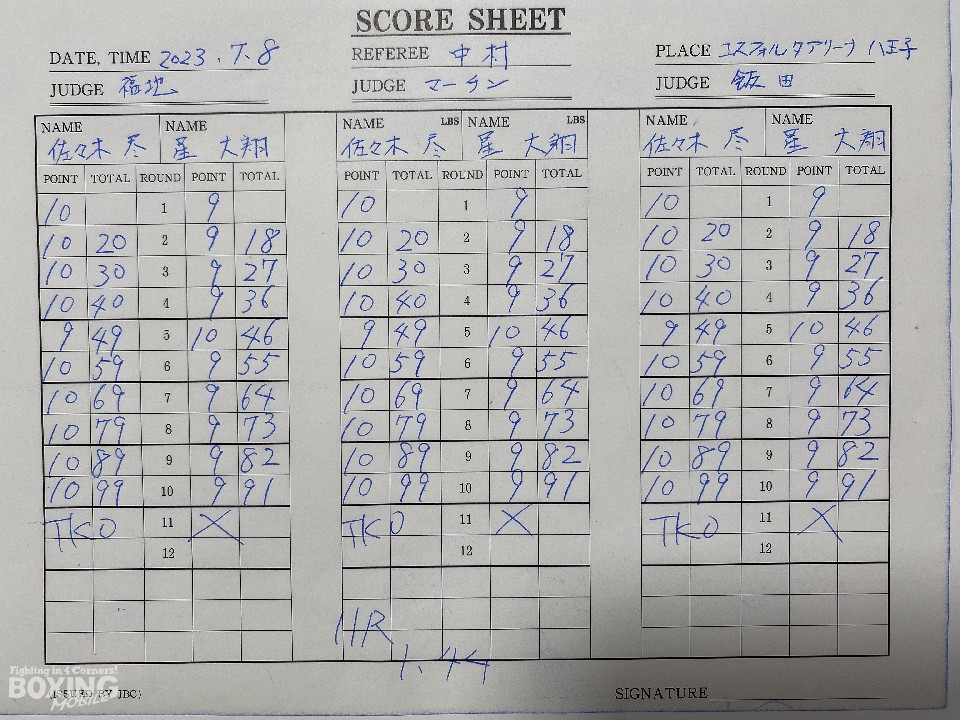 SCORE SHEET
DATE, TIME 2023.7.8 REFEREE 中村 PLACE エスフォルタアリーナ 八王子
JUDGE 福地 JUDGE マーチン JUDGE 飯田
NAME NAME NAME LBS NAME LBS NAME NAME
佐々木 尽 星 大翔 佐々木 尽 星 大翔 佐々木 尽 星 大翔
POINT TOTAL ROUND POINT TOTAL POINT TOTAL ROUND POINT TOTAL POINT TOTAL ROUND POINT TOTAL
10 1 9 10 1 9 10 1 9
10 20 2 9 18 10 20 2 9 18 10 20 2 9 18
10 30 3 9 27 10 30 3 9 27 10 30 3 9 27
10 40 4 9 36 10 40 4 9 36 10 40 4 9 36
9 49 5 10 46 9 49 5 10 46 9 49 5 10 46
10 59 6 9 55 10 59 6 9 55 10 59 6 9 55
10 69 7 9 64 10 69 7 9 64 10 69 7 9 64
10 79 8 9 73 10 79 8 9 73 10 79 8 9 73
10 89 9 9 82 10 89 9 9 82 10 89 9 9 82
10 99 10 9 91 10 99 10 9 91 10 99 10 9 91
TKO 11 X TKO 11 X TKO 11 X
12 12 12
11R
1.44
Fighting in 4 Corners!
BOXING
MOBILE
(ISSUED BY JBC) SIGNATURE